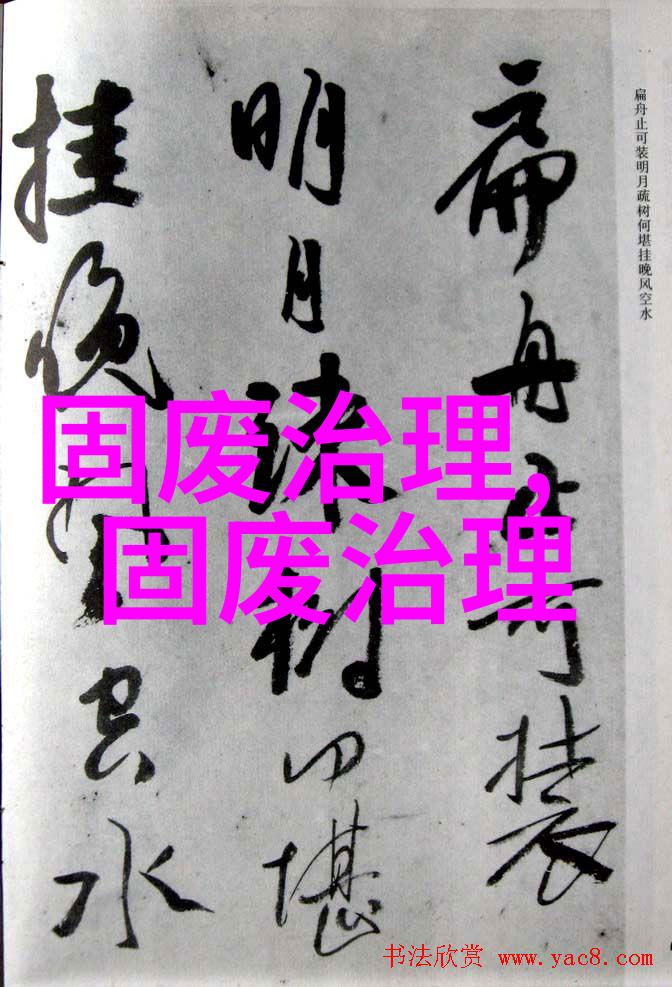 扁舟止可装明月疏树何堪挂晚风空水
扁舟止可装
明月疏树何堪
挂晚风空水
固废治理,
固废治理
书法欣赏 www.yac8.com